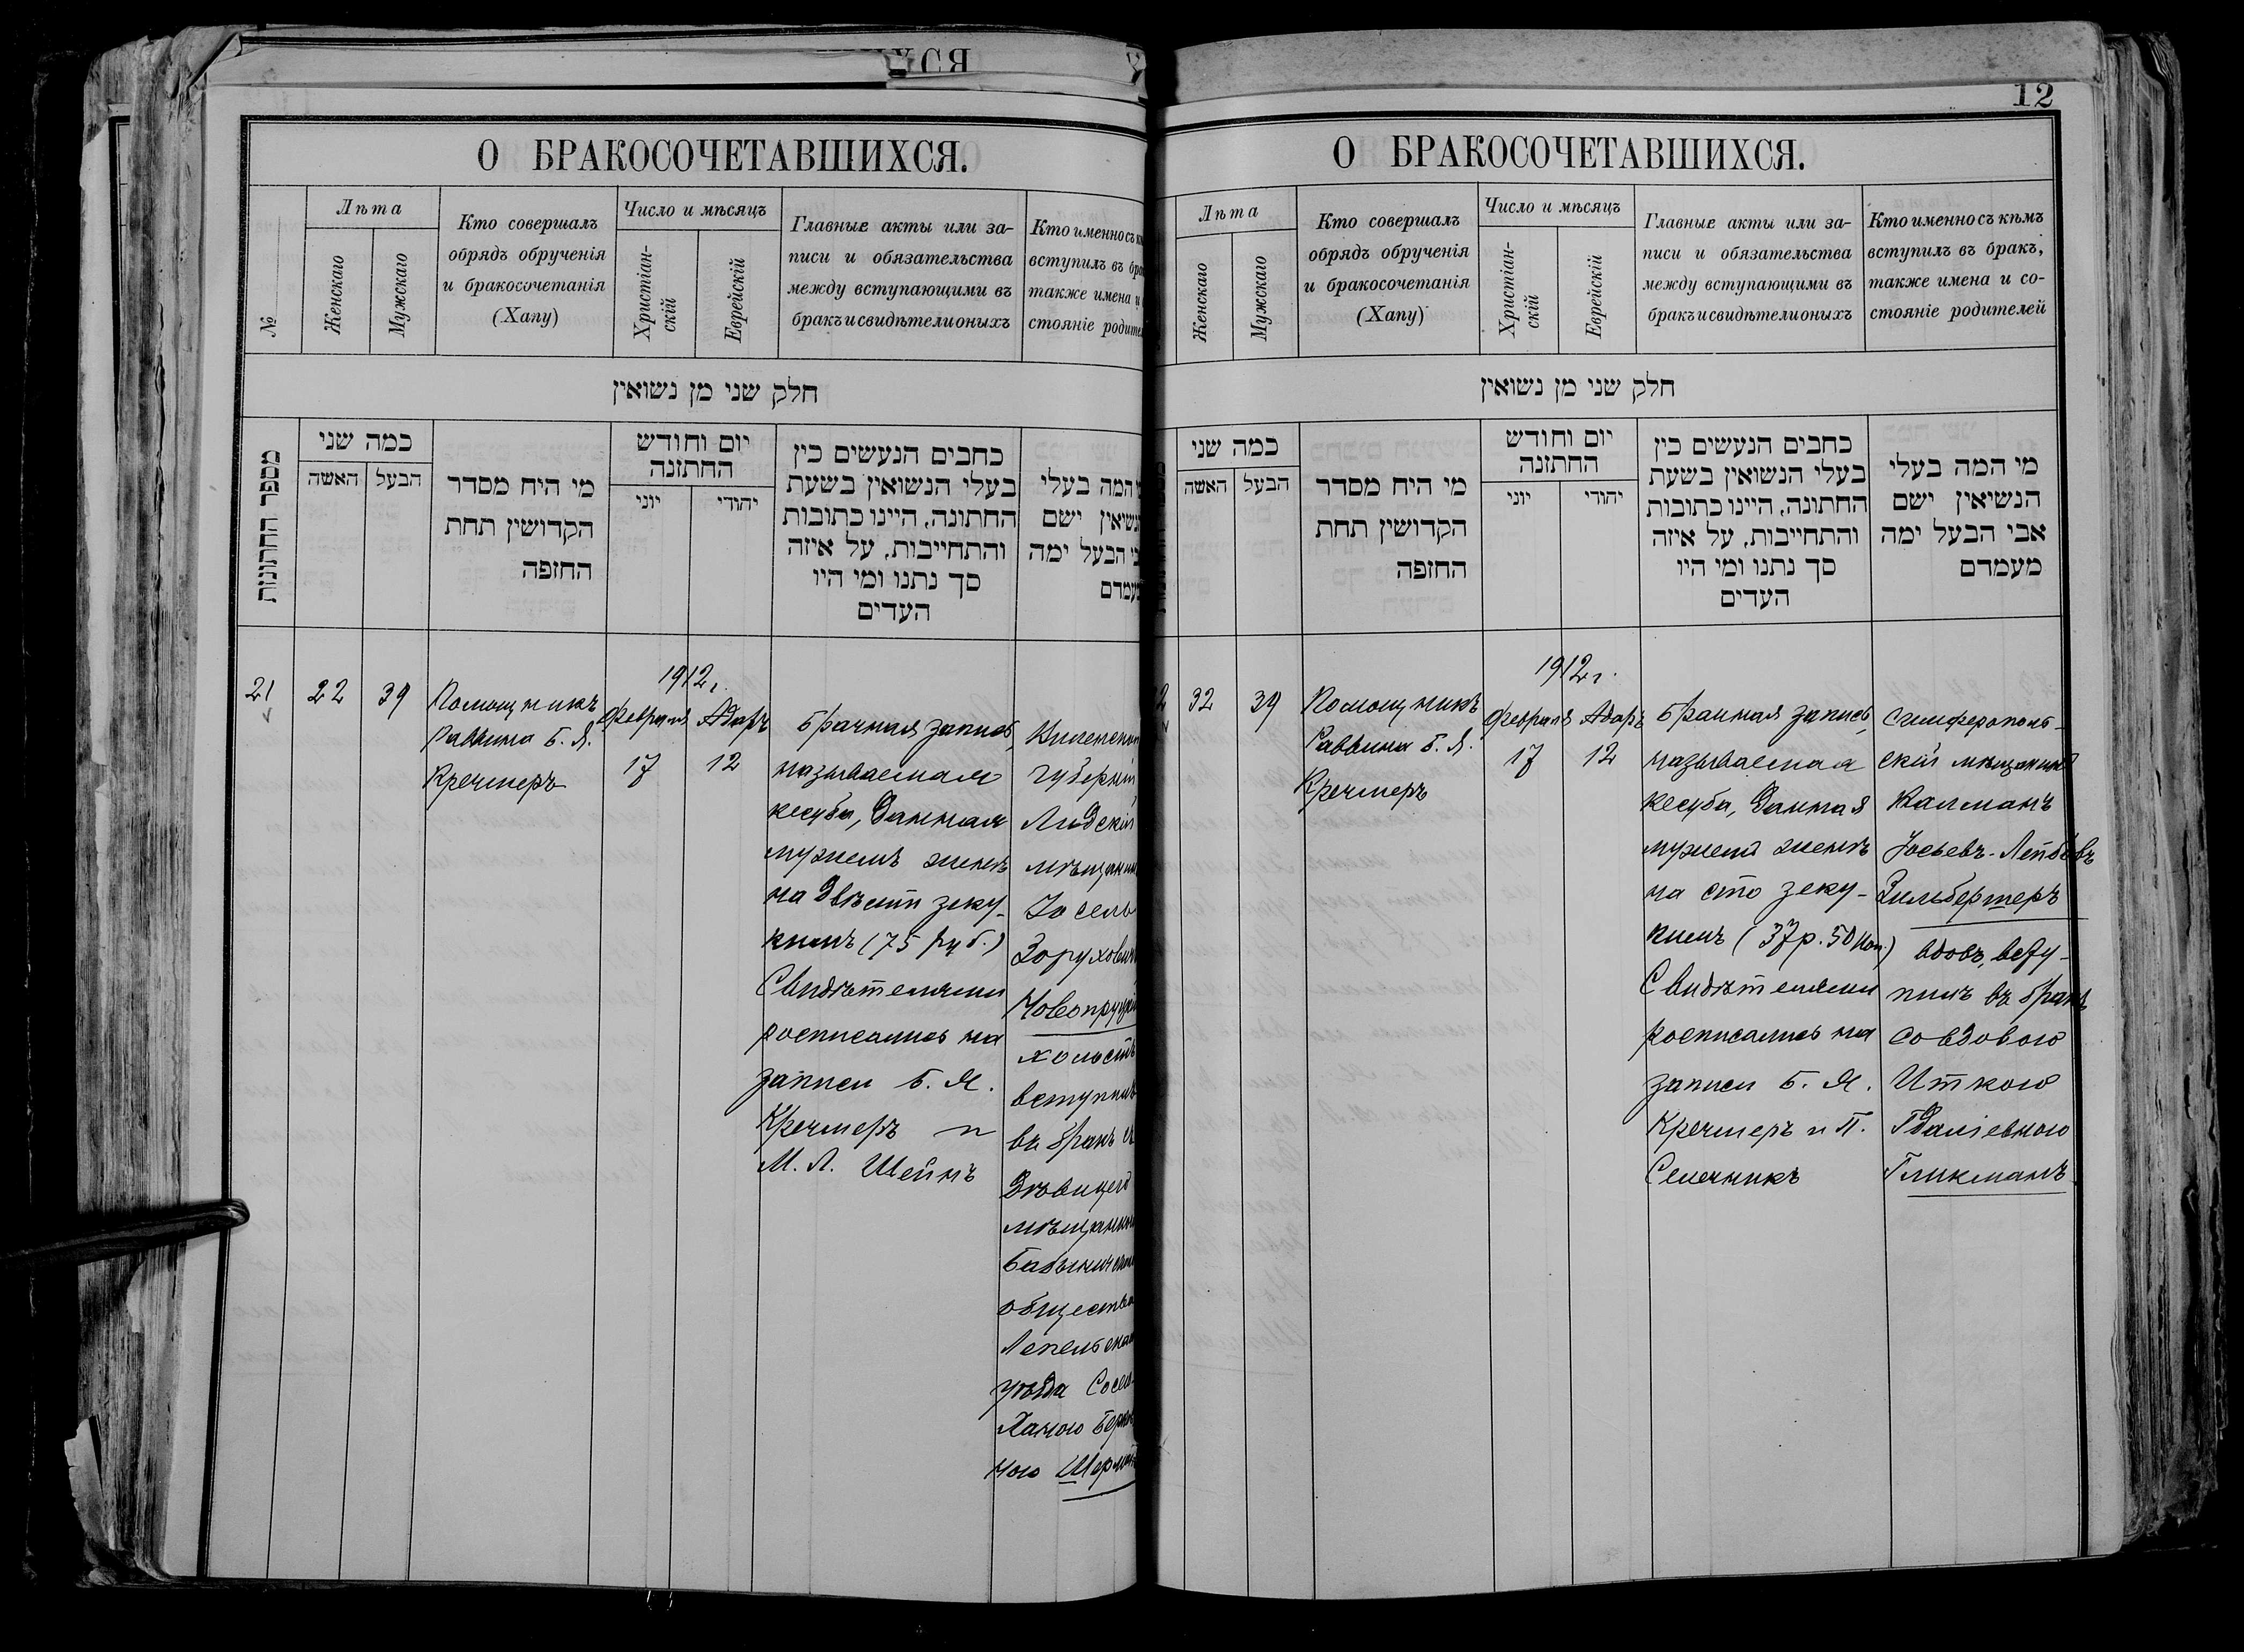 ХСЯ
О БРАКОСОЧЕТАВШИХСЯ.
№
Лѣта
Женскаго
Мужскаго
Кто совершалъ
обрядъ обрученія
и бракосочетанія
(Хапу)
Число и мѣсяцъ
Христіан-
скій
Еврейскій
Главные акты или за-
писи и обязательства
между вступающими въ
бракъ и свидѣтели оныхъ
Кто именно съ
вступилъ въ
также имена и
стояніе
חלק שני מן נשואין
מספר החתונות
כמה שני
האשה
הבעל
מי היח מסדר
הקדושין תחת
החזפה
יום וחודש
החתזנה
יוני
יהודי
כחבים הנעשים כין
בעלי הנשואין בשעת
החתונה, היינו כתובות
והתחייבות, על איזה
סך נתנו ומי היו
העדים
המה בעלי
ישם
הבעל ימה
21
22
39
Помощникъ
Раввина Б. Я.
Кречмеръ
1912 г.
Февраля
17
Адаръ
12
Брачная запись,
называемая
кесуба, данная
мужемъ женѣ
на двѣсти зеку-
кимъ (75 руб.)
Свидѣтелями
росписались на
записи Б. Я.
Кречмеръ и
М. Л. Шейнъ
Лидскій
Іосель
холостъ
вступилъ
въ бракъ съ
общества
уѣзда
Ханою
ною
12
О БРАКОСОЧЕТАВШИХСЯ.
Лѣта
Женскаго
Мужскаго
Кто совершалъ
обрядъ обрученія
и бракосочетанія
(Хапу)
Число и мѣсяцъ
Христіан-
скій
Еврейскій
Главные акты или за-
писи и обязательства
между вступающими въ
бракъ и свидѣтели оныхъ
Кто именно съ кѣмъ
вступилъ въ бракъ,
также имена и со-
стояніе родителей
חלק שני מן נשואין
כמה שני
האשה
הבעל
מי היח מסדר
הקדושין תחת
החזפה
יום וחודש
החתזנה
יוני
יהודי
כחבים הנעשים כין
בעלי הנשואין בשעת
החתונה, היינו כתובות
והתחייבות, על איזה
סך נתנו ומי היו
העדים
מי המה בעלי
הנשיאין ישם
אבי הבעל ימה
מעמדם
32
39
Помощникъ
Раввина Б. Я.
Кречмеръ
1912 г.
Февраля
17
Адаръ
12
Брачная запись,
называемая
кесуба, данная
мужемъ женѣ
на сто зеку-
кимъ (37 р. 50 коп.)
Свидѣтелями
росписались на
записи Б. Я.
Кречмеръ и П.
Селечникъ
Симферополь-
скій мѣщанинъ
Калманъ
Іосьевъ-Лейбовъ
Зильбертеръ
вдовъ, всту-
пилъ въ бракъ
со вдовою
Иткою
Гдаліевною
Гликманъ